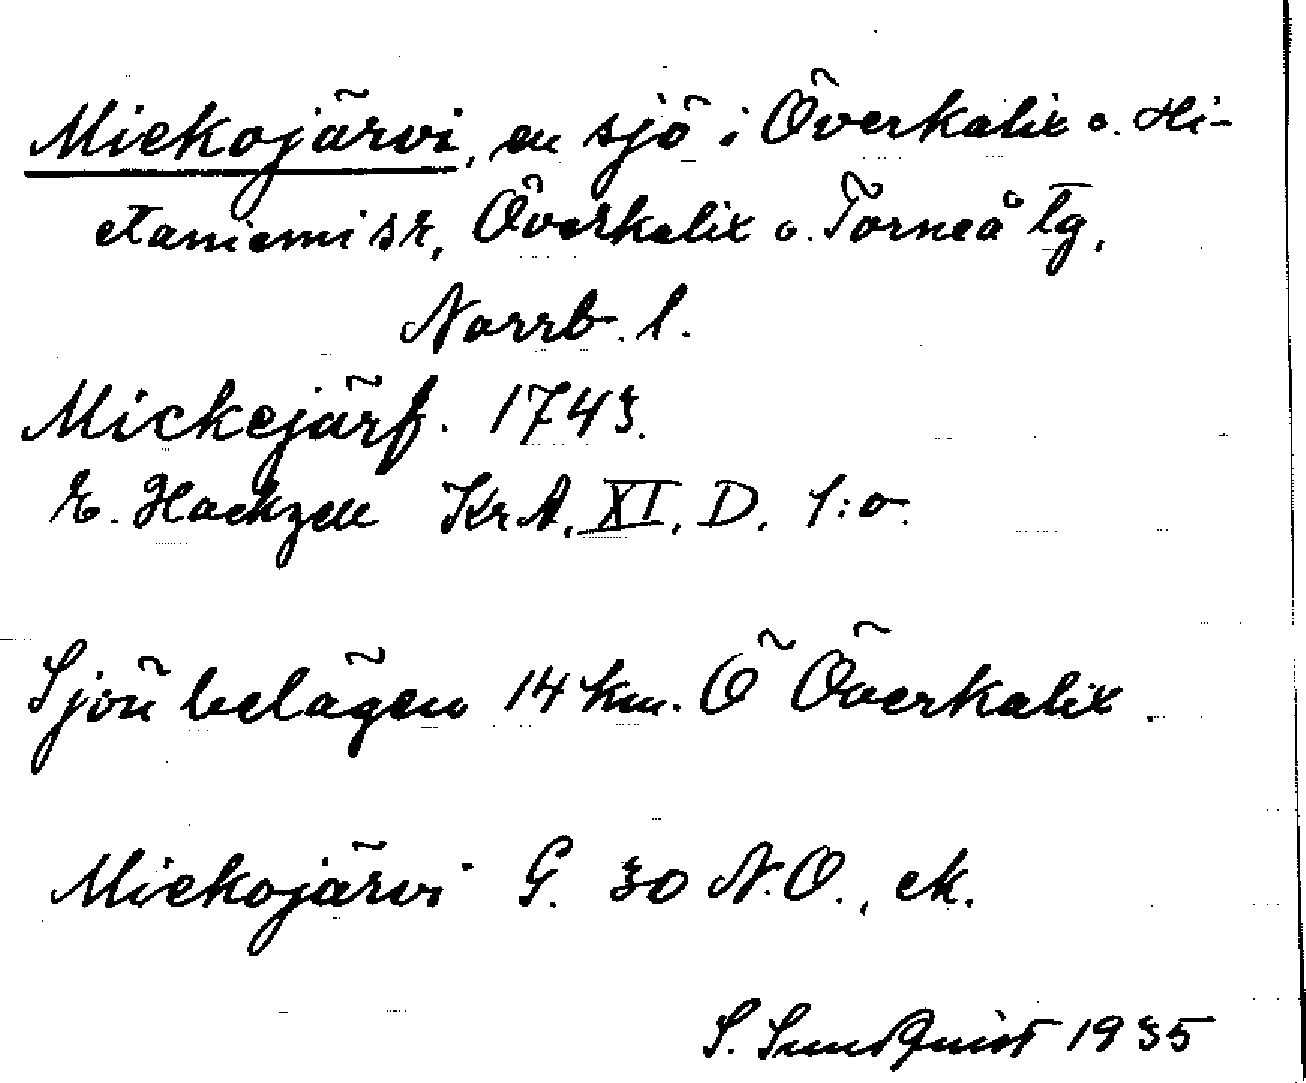 Miekojärvi, en sjö i Överkalix o. Hi-
etaniemi sr, Överkalix o. Torneå tg,
Norrb. l.
Mickejärf. 1743.
E. Hackzell KrA, XI, D. 1:o.
Sjön belägen 14 km. Ö Överkalix.
Miekojärvi G. 30 N.O., ek.
S. Sundquist 1935